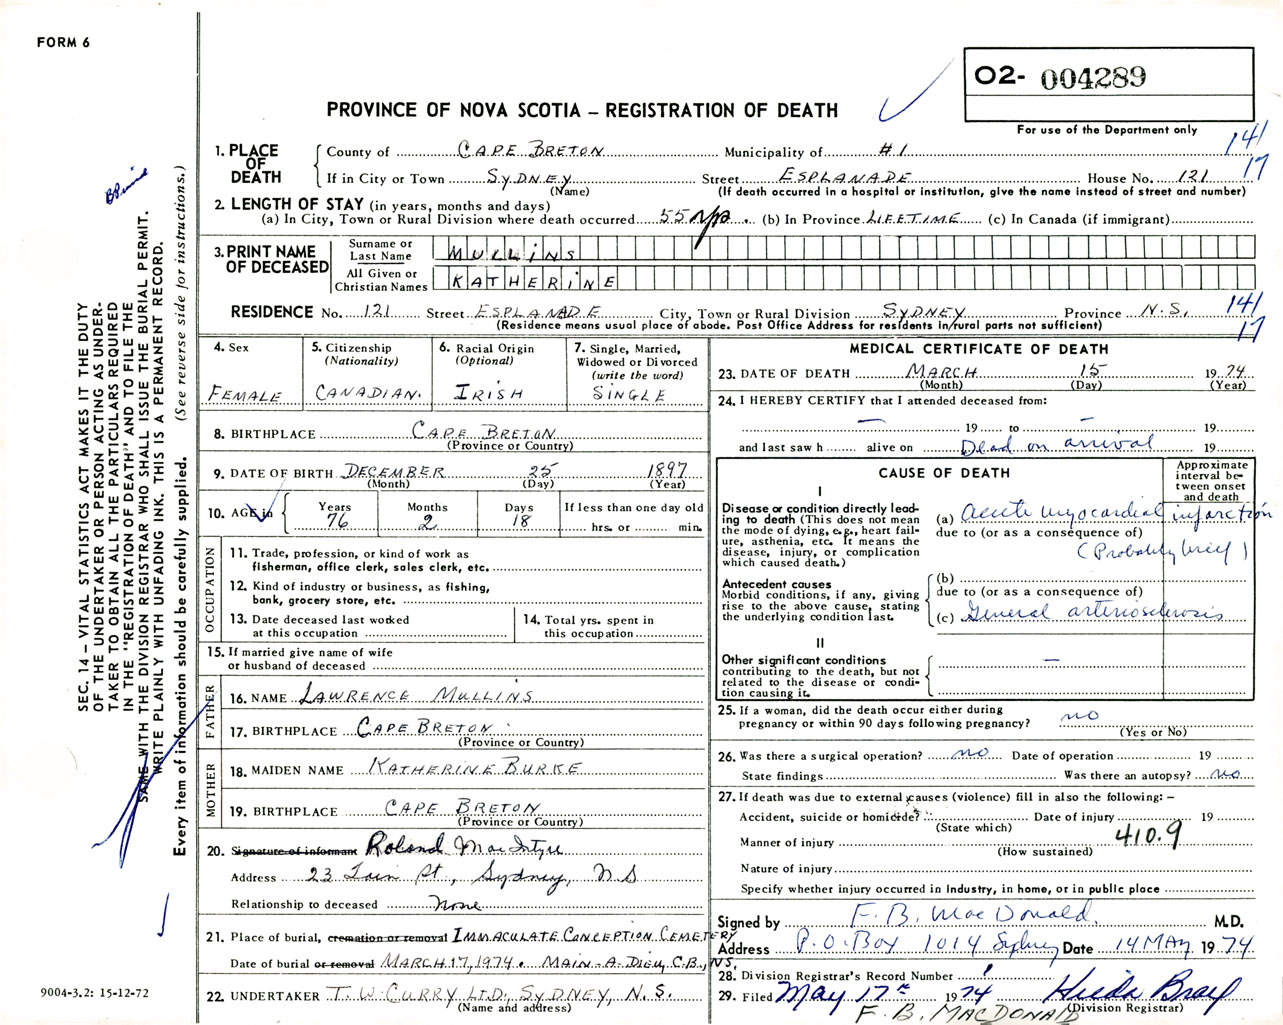 FORM 6
O2- 004289
PROVINCE OF NOVA SCOTIA – REGISTRATION OF DEATH
For use of the Department only
1. PLACE OF DEATH
County of CAPE BRETON Municipality of #1
141
If in City or Town SYDNEY Street ESPLANADE House No. 121
17
(Name) (If death occurred in a hospital or institution, give the name instead of street and number)
2. LENGTH OF STAY (in years, months and days)
(a) In City, Town or Rural Division where death occurred 55 yrs. (b) In Province LIFETIME (c) In Canada (if immigrant)
3. PRINT NAME OF DECEASED
Surname or Last Name MULLINS
All Given or Christian Names KATHERINE
RESIDENCE No. 121 Street ESPLANADE City, Town or Rural Division SYDNEY Province N.S.
141
(Residence means usual place of abode. Post Office Address for residents in rural parts not sufficient)
17
4. Sex
FEMALE
5. Citizenship
(Nationality)
CANADIAN.
6. Racial Origin
(Optional)
IRISH
7. Single, Married,
Widowed or Divorced
(write the word)
SINGLE
8. BIRTHPLACE CAPE BRETON
(Province or Country)
9. DATE OF BIRTH DECEMBER 25 1897
(Month) (Day) (Year)
10. AGE in
Years Months Days If less than one day old
76 2 18 hrs. or min.
OCCUPATION
11. Trade, profession, or kind of work as
fisherman, office clerk, sales clerk, etc.
12. Kind of industry or business, as fishing,
bank, grocery store, etc.
13. Date deceased last worked
at this occupation
14. Total yrs. spent in
this occupation
15. If married give name of wife
or husband of deceased
FATHER
16. NAME LAWRENCE MULLINS
17. BIRTHPLACE CAPE BRETON
(Province or Country)
MOTHER
18. MAIDEN NAME KATHERINE BURKE
19. BIRTHPLACE CAPE BRETON
(Province or Country)
20. Signature of informant Roland MacIntyre
Address 23 St., Sydney, N S
Relationship to deceased None
21. Place of burial, cremation or removal IMMACULATE CONCEPTION CEMETERY
Date of burial or removal MARCH 17, 1974. MAIN-A-DIEU, C.B., N.S.
22. UNDERTAKER T.W. CURRY LTD., SYDNEY, N.S.
(Name and address)
MEDICAL CERTIFICATE OF DEATH
23. DATE OF DEATH MARCH 15 1974
(Month) (Day) (Year)
24. I HEREBY CERTIFY that I attended deceased from:
— 19 to – 19
and last saw h alive on Dead on arrival 19
CAUSE OF DEATH
Approximate
interval be-
tween onset
and death
I
Disease or condition directly lead-
ing to death (This does not mean
the mode of dying, e.g., heart fail-
ure, asthenia, etc. It means the
disease, injury, or complication
which caused death.)
(a) Acute myocardial infarction
due to (or as a consequence of)
(Probably brief)
Antecedent causes
Morbid conditions, if any, giving
rise to the above cause, stating
the underlying condition last.
(b)
due to (or as a consequence of)
(c) General arteriosclerosis
II
Other significant conditions
contributing to the death, but not
related to the disease or condi-
tion causing it.
—
25. If a woman, did the death occur either during
pregnancy or within 90 days following pregnancy? no
(Yes or No)
26. Was there a surgical operation? no Date of operation 19
State findings Was there an autopsy? no
27. If death was due to external causes (violence) fill in also the following: –
Accident, suicide or homicide? Date of injury 19
(State which)
Manner of injury 410.9
(How sustained)
Nature of injury
Specify whether injury occurred in industry, in home, or in public place
Signed by F. B. MacDonald. M.D.
Address P.O. Box 1014 Sydney Date 14 MAY 1974
28. Division Registrar's Record Number 1
29. Filed May 17th 1974 Hilda Bray
(Division Registrar)
F. B. MACDONALD
SEC. 14 – VITAL STATISTICS ACT MAKES IT THE DUTY
OF THE UNDERTAKER OR PERSON ACTING AS UNDER-
TAKER TO OBTAIN ALL THE PARTICULARS REQUIRED
IN THE "REGISTRATION OF DEATH" AND TO FILE THE
SAME WITH THE DIVISION REGISTRAR WHO SHALL ISSUE THE BURIAL PERMIT.
WRITE PLAINLY WITH UNFADING INK. THIS IS A PERMANENT RECORD.
Every item of information should be carefully supplied. (See reverse side for instructions.)
9004-3.2: 15-12-72